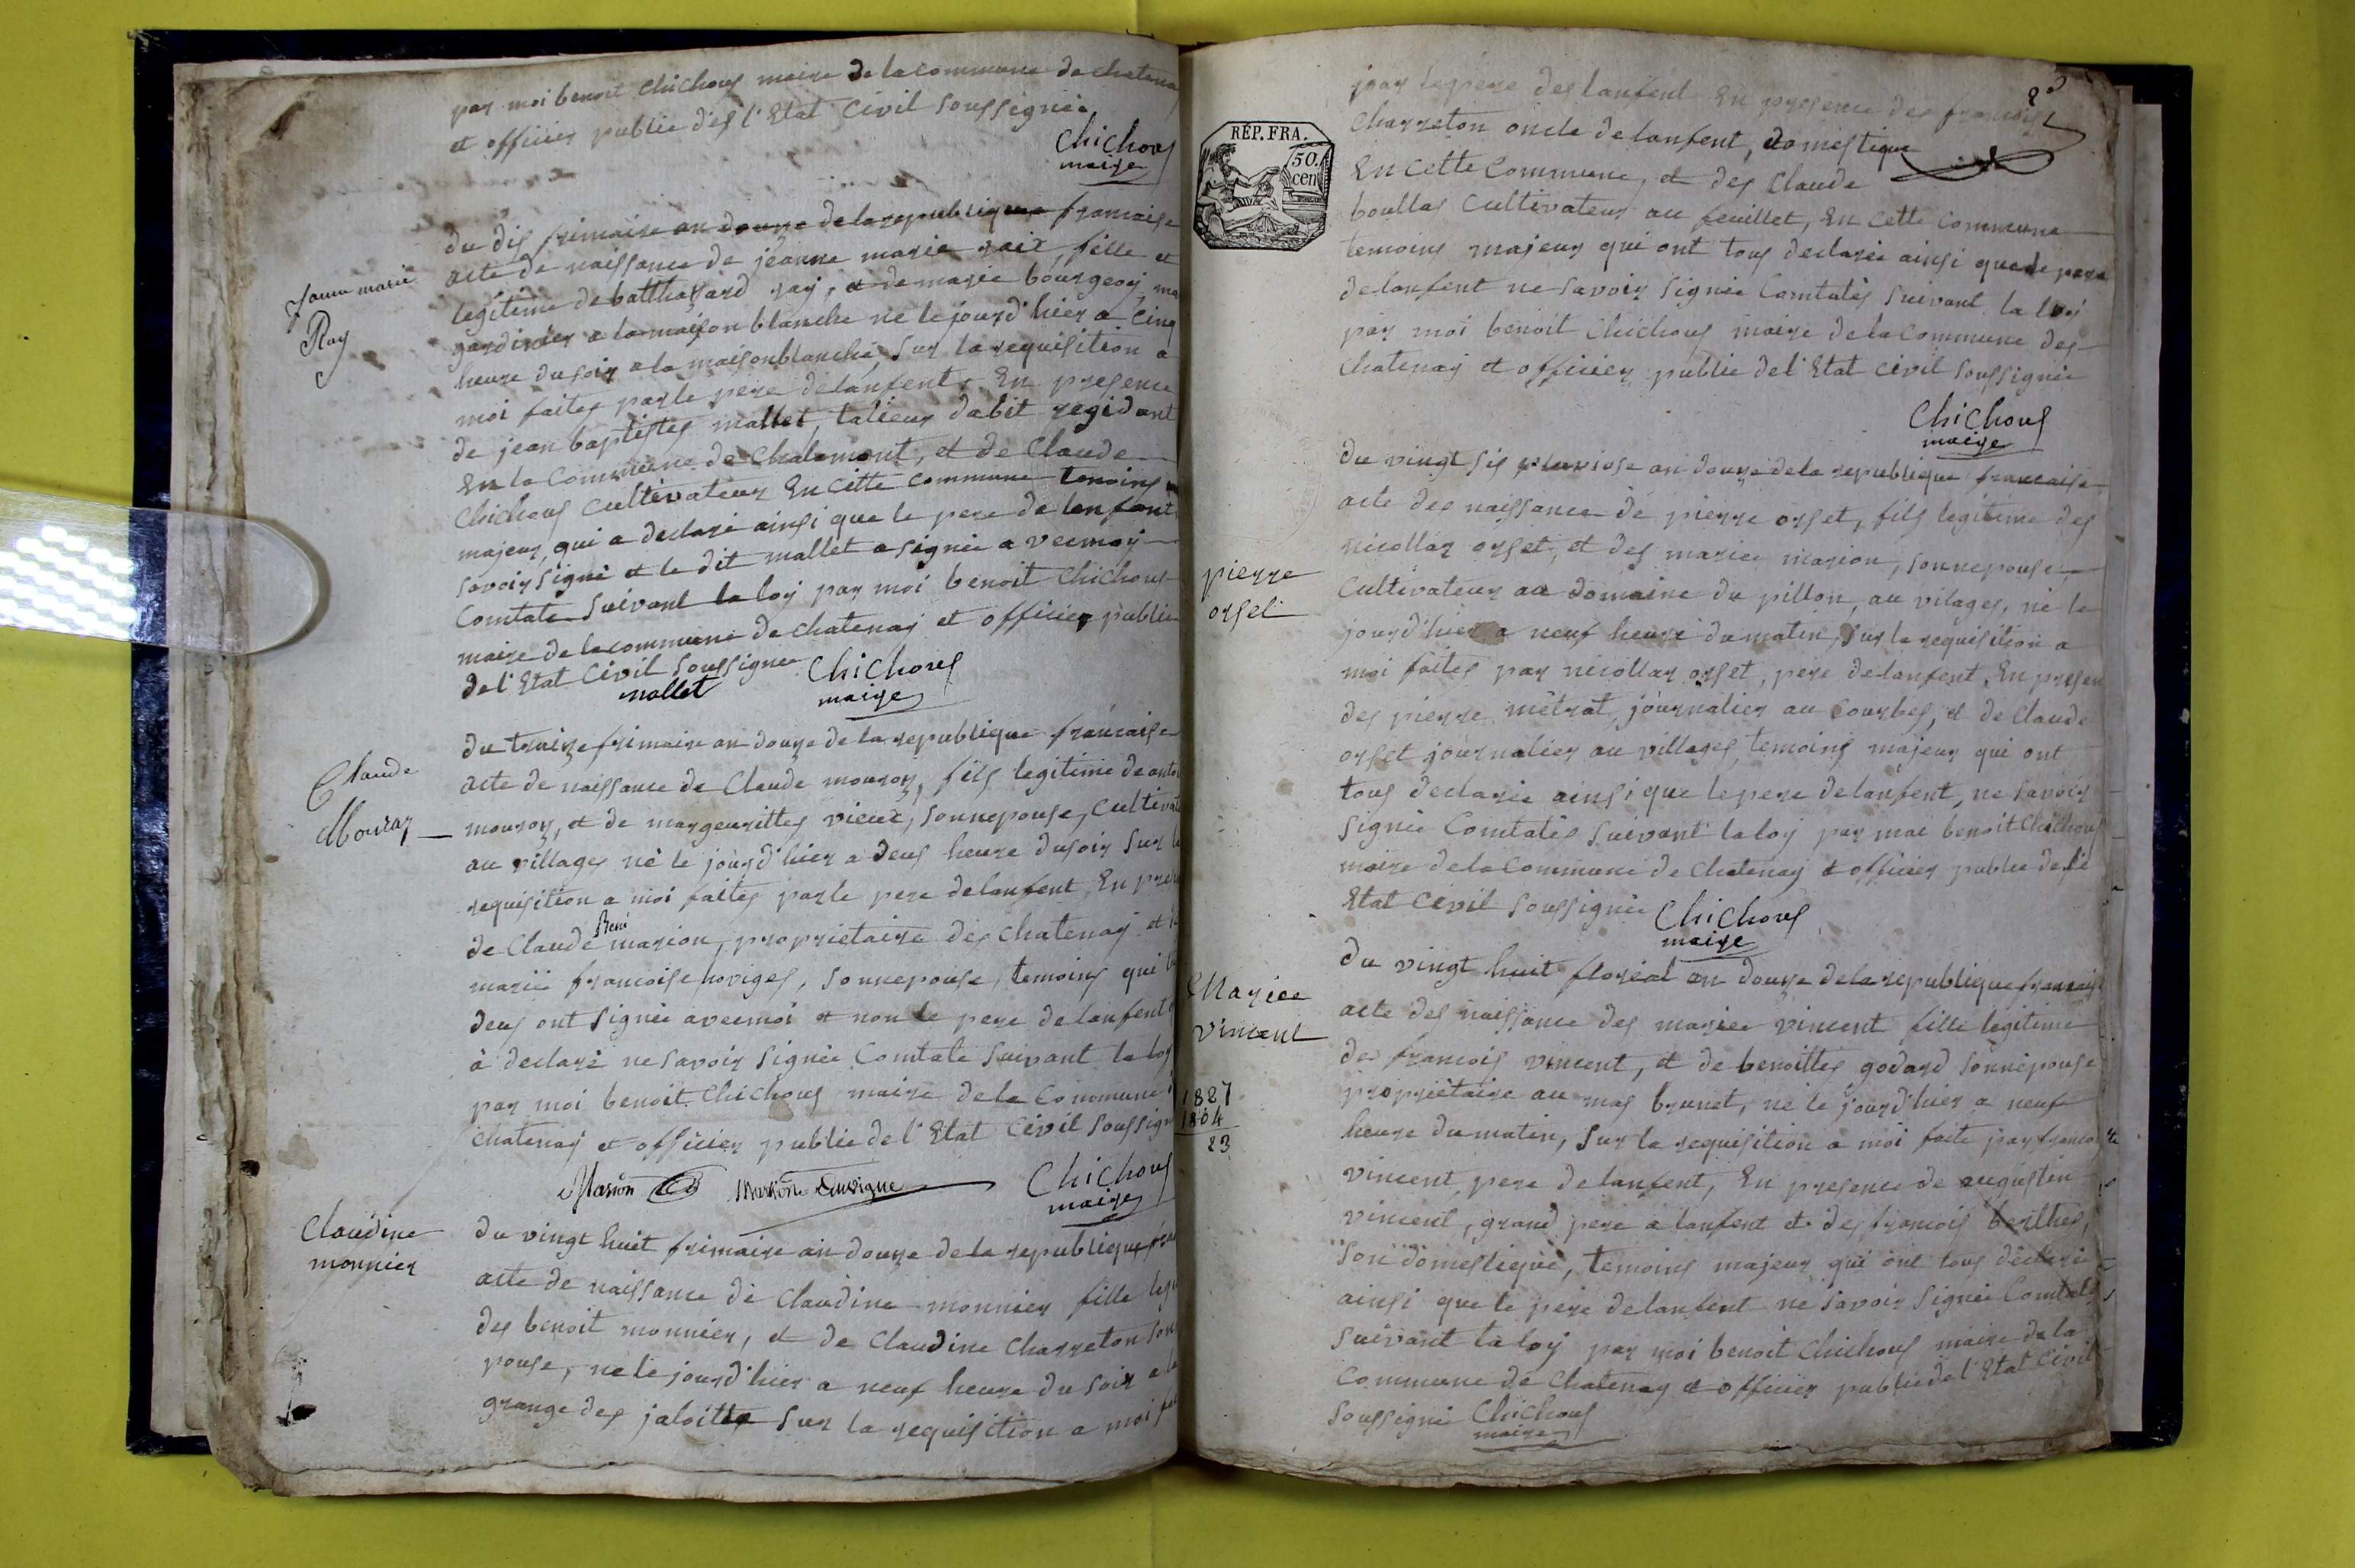 par moi benoit Chichoux maire de la commune de chatenay
et officier public des l'Etat Civil soussignée
Chichoux
maire
du dix frimaire an douze de la republique francaise
acte de naissance de jeanne marie raix, fille et
legitime de batthazard ray, et de marie bourgeoy
jeanne marie
Ray
jardinier a la maison blanche né le jourd'hier a cinq
heure du soir a la maison blanche, sur la requisition a
moi faites par le pere de lanfent, En presence
de jean baptistes mallet, talieur dabit residant
En la Commune de Chalamont, et de Claude
Chichoux Cultivateur En cette commune temoins
majeur, qui a declaré ainsi que le pere de lenfant
savoir signé et le dit mallet a signée avecmoy
Comtate suivant la loy par moi benoit Chichoux
maire de la commune de chatenay et officier public
de l'Etat Civil soussignée Chichoux
mallet
maire
du traize frimaire an douze de la republique francaise
Claude
Mouray
acte de naissance de Claude mouroy, fils legitime de
mouroy, et de margeurittes vieux, sonnepouse, Cultivat
au villages né le jourd'hier a deux heure du soir sur
requisition a moi faites par le pere de lanfent, En
de Claude René marion, proprietaire des chatenay et
marie francoise noviges, sonnepouse, temoins qui
deux ont signée avecmoi et non le pere de lanfent
à declaré ne savoir signée Comtate suivant la loy
par moi benoit Chichoux maire de la Commune
chatenay et officier public de l'Etat Civil soussign
Marion
Chichoux
maire
Claudine
monnier
du vingt huit frimaire an douze de la republique
acte de naissance de Claudine monnier fille
des benoit monnier, et de Claudine Charreton
pouse, né le jourd'hier a neuf heure du soir a la
grange des jaloitte sur la requisition a moi
par le pere des lanfent En presence des francois
Charreton oncle de lanfent, domestique
En cette Commune, et des Claude
REP. FRA.
50.
cen
boullas Cultivateur au feuillet, En cette commune
temoins majeur qui ont tous declarée ainsi que le pere
de lanfent ne savoir signée Comtatés suivant la loi
par moi benoit Chichoux maire de la Commune des
Chatenay et officier public de l'Etat civil soussignée
Chichoux
maire
du vingt six pluviose an douze de la republique francaise
acte des naissance de pierre orset, fils legitime des
nicollas orset, et des mariee marion, sonnepouse
pierre
orset
Cultivateur au domaine du pillon, au vilages, né le
jourd'hier a neuf heure du matin, sur la requisition a
moi faites par nicollas orset, pere de lanfent, En presen
des pierre métrat, journalier au Courbes, et de Claude
orset journalier au villages, temoins majeur qui ont
tous declarée ainsi que le pere de lanfent, ne savoir
signée Comtatés suivant la loy par moi benoit Chichoux
maire de la Commune de Chatenay et officier public de l'e
Etat Civil soussignée Chichoux
maire
du vingt huit floréal an douze de la republique francaise
Mariee
Vincent
acte des naissance des mariee vincent fille legitime
des francois vincent, et de benoittes godard sonnepouse
1827
1804
23
proprietaire au mas brunet, né le jourd'hier a neuf
heure du matin, sur la requisition a moi faite par franco
vincent, pere de lanfent, En presence de augustin
vincent, grand pere a lanfent et des francois berthes,
son domestique, temoins majeur qui ont tous déclaré
ainsi que le pere de lanfent ne savoir signée Comtaté
suivant la loy par moi benoit Chichoux maire de la
Commune de Chatenay et officier public de l'Etat Civil
soussigné Chichoux
maire